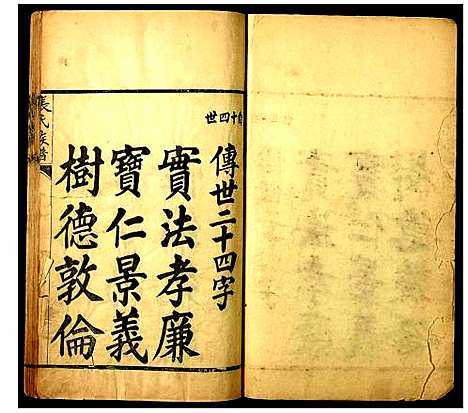 十四世
傳世二十四字
實法孝廉
寶仁景義
樹德敦倫
氏族譜